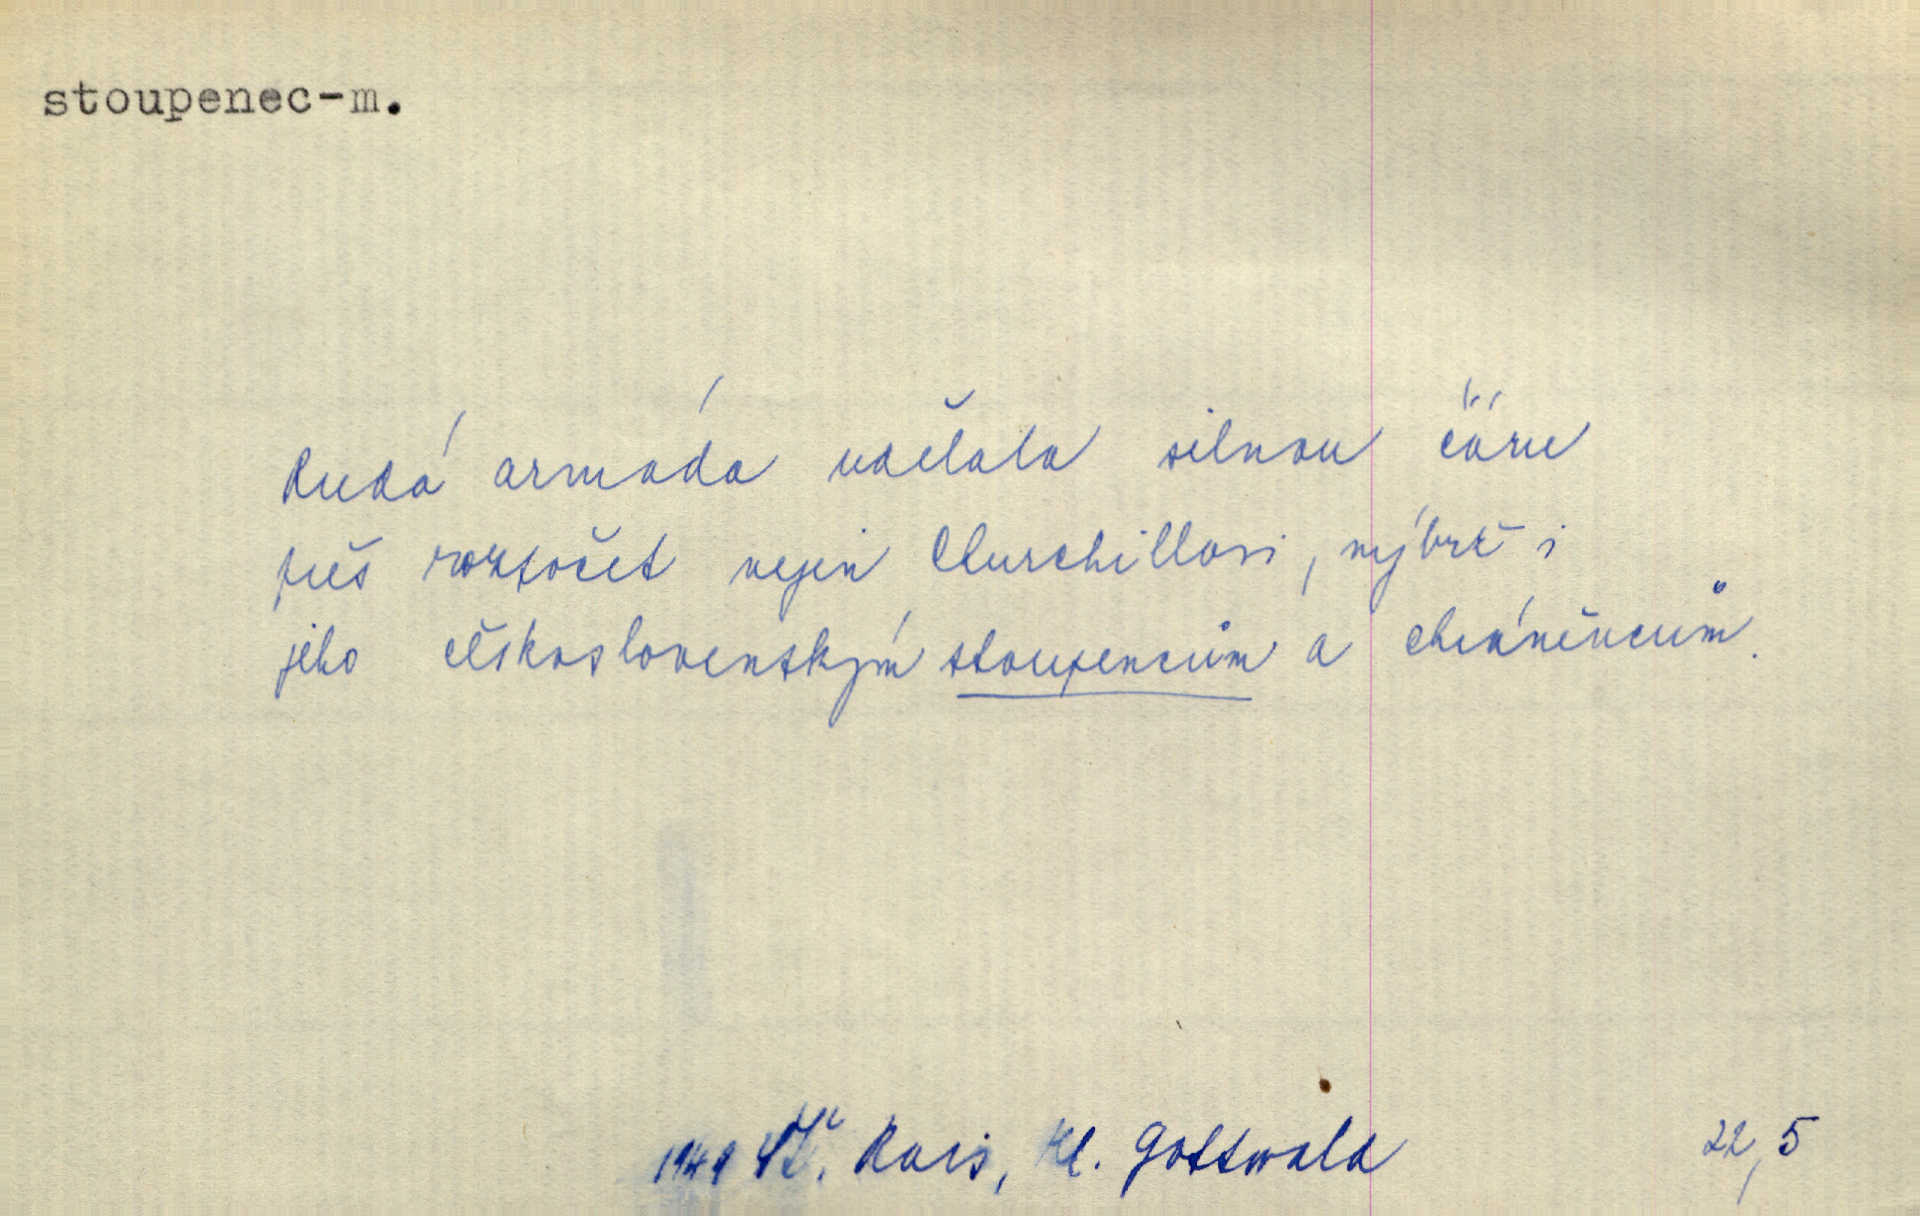 stoupenec-m.
Rudá armáda udělala silnou čáru
přes rozpočet nejen Churchillovi, nýbrž i
jeho československým stoupencům a chráněncům.
1949 Št. Rais, Kl. Gottwald 22,5